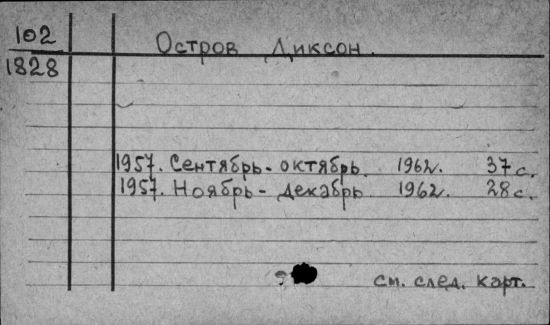 102
1828
Остров Диксон.
1957. Сентябрь - октябрь 1962г. 37 с.
1957. Ноябрь - декабрь 1962г. 28 с.
см. след. карт.